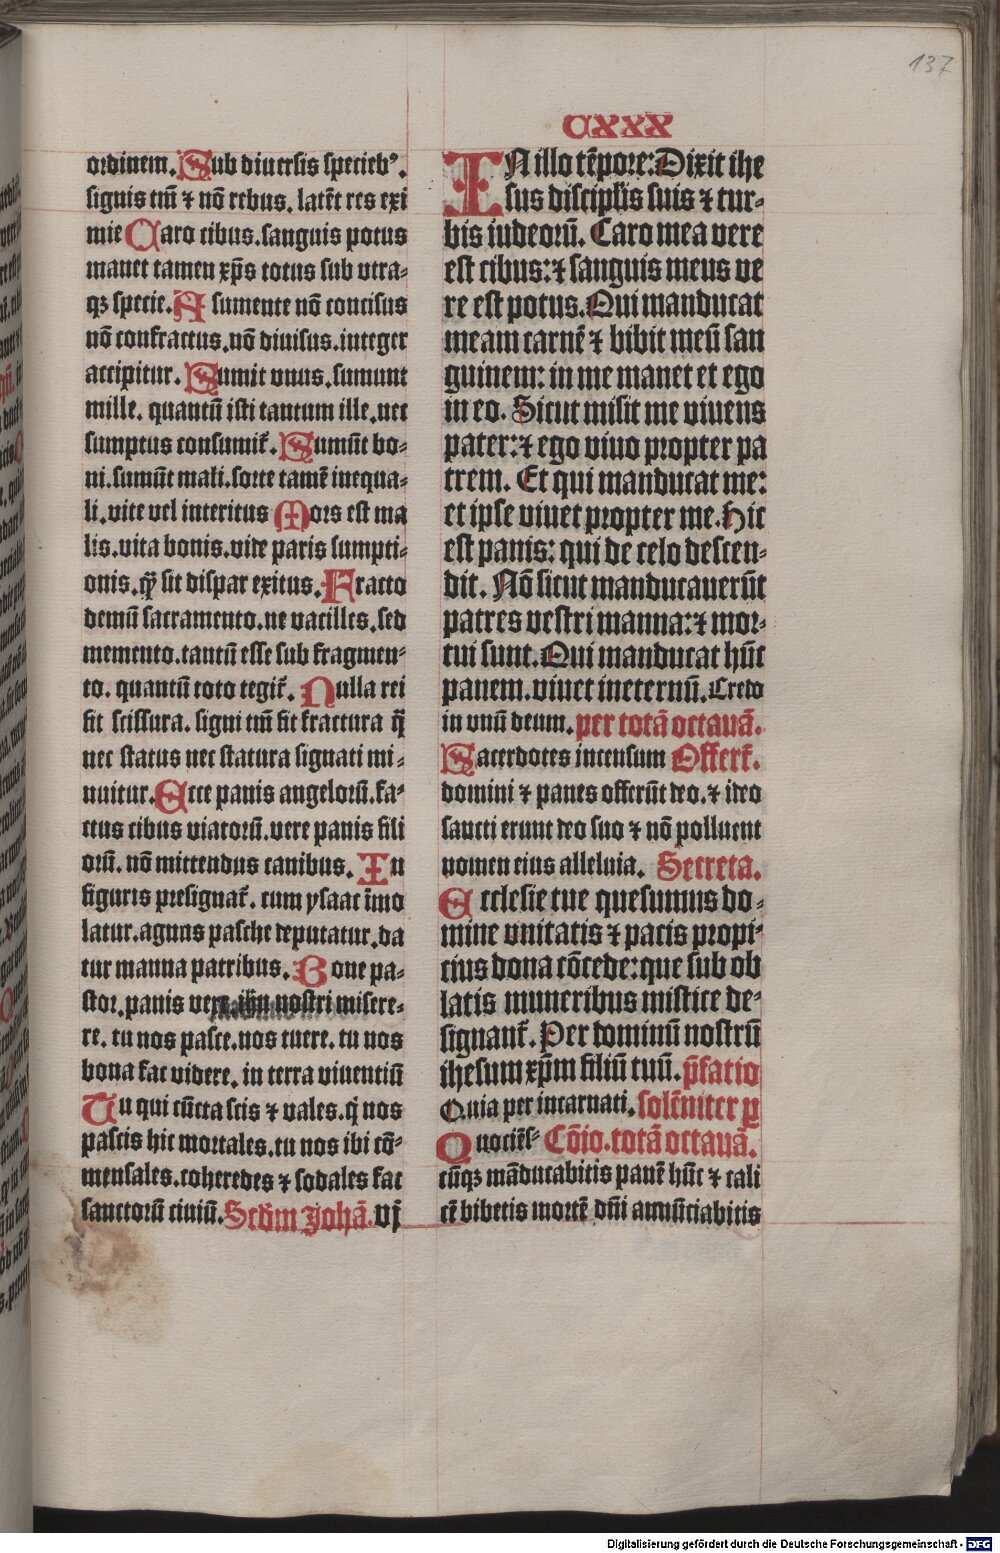 137
CXXX
ordinem. Sub diuersis specieb⁹.
signis tm̄ ⁊ nō rebus. latēt res exi
mie Caro cibus. sanguis potus
manet tamen xp̄s totus sub vtra-
qꝫ specie. A sumente nō concisus
nō confractus. nō diuisus. integer
accipitur. Sumit vnus. sumunt
mille. quantū isti tantum ille. nec
sumptus consumit᷑. Sumūt bo-
ni. sumūt mali. sorte tamē inequa-
li. vite vel interitus Mors est ma
lis. vita bonis. vide paris sumpti-
onis. qȝ̄ sit dispar exitus. Fracto
demū sacramento. ne vacilles. sed
memento. tantū esse sub fragmen-
to. quantū toto tegit᷑. Nulla rei
fit scissura. signi tm̄ fit fractura q̄
nec status nec statura signati mi-
nuitur. Ecce panis angelorū. fa-
ctus cibus viatorū. vere panis fili
orū. nō mittendus canibus. In
figuris presignat᷑. cum ysaac īmo
latur. agnus pasche deputatur. da
tur manna patribus. Bone pa-
stor. panis vere. ihu nostri misere-
re. tu nos pasce. nos tuere. tu nos
bona fac videre. in terra viuentiū
Tu qui cūcta scis ⁊ vales. q̇ nos
pascis hic mortales. tu nos ibi cō-
mensales. coheredes ⁊ sodales fac
sanctorū ciuiū. Scd̄m Johā. vj
IN illo tēpore: Dixit ihe
sus disciplīs suis ⁊ tur-
bis iudeorū. Caro mea vere
est cibus: ⁊ sanguis meus ve
re est potus. Qui manducat
meam carnē ⁊ bibit meū san
guinem: in me manet et ego
in eo. Sicut misit me viuens
pater: ⁊ ego viuo propter pa
trem. Et qui manducat me:
et ipse viuet propter me. Hic
est panis: qui de celo descen-
dit. Nō sicut manducauerūt
patres vestri manna: ⁊ mor-
tui sunt. Qui manducat hūc
panem. viuet ineternū. Credo
in vnū deum. per totā octauā.
Sacerdotes incensum Offert᷑.
domini ⁊ panes offerūt deo. ⁊ ideo
sancti erunt deo suo ⁊ nō polluent
nomen eius alleluia. Secreta.
Ecclesie tue quesumus do-
mine vnitatis ⁊ pacis propi-
cius dona cōcede: que sub ob
latis muneribus mistice de-
signant᷑. Per dominū nostrū
ihesum xp̄m filiū tuū. p̄fatio
Quia per incarnati. solēniter ꝑ
Quociēs- Cōio. totā octauā.
cūqꝫ māducabitis panē hūc ⁊ cali
cē bibetis mortē dn̄i annūciabitis
Digitalisierung gefördert durch die Deutsche Forschungsgemeinschaft - DFG